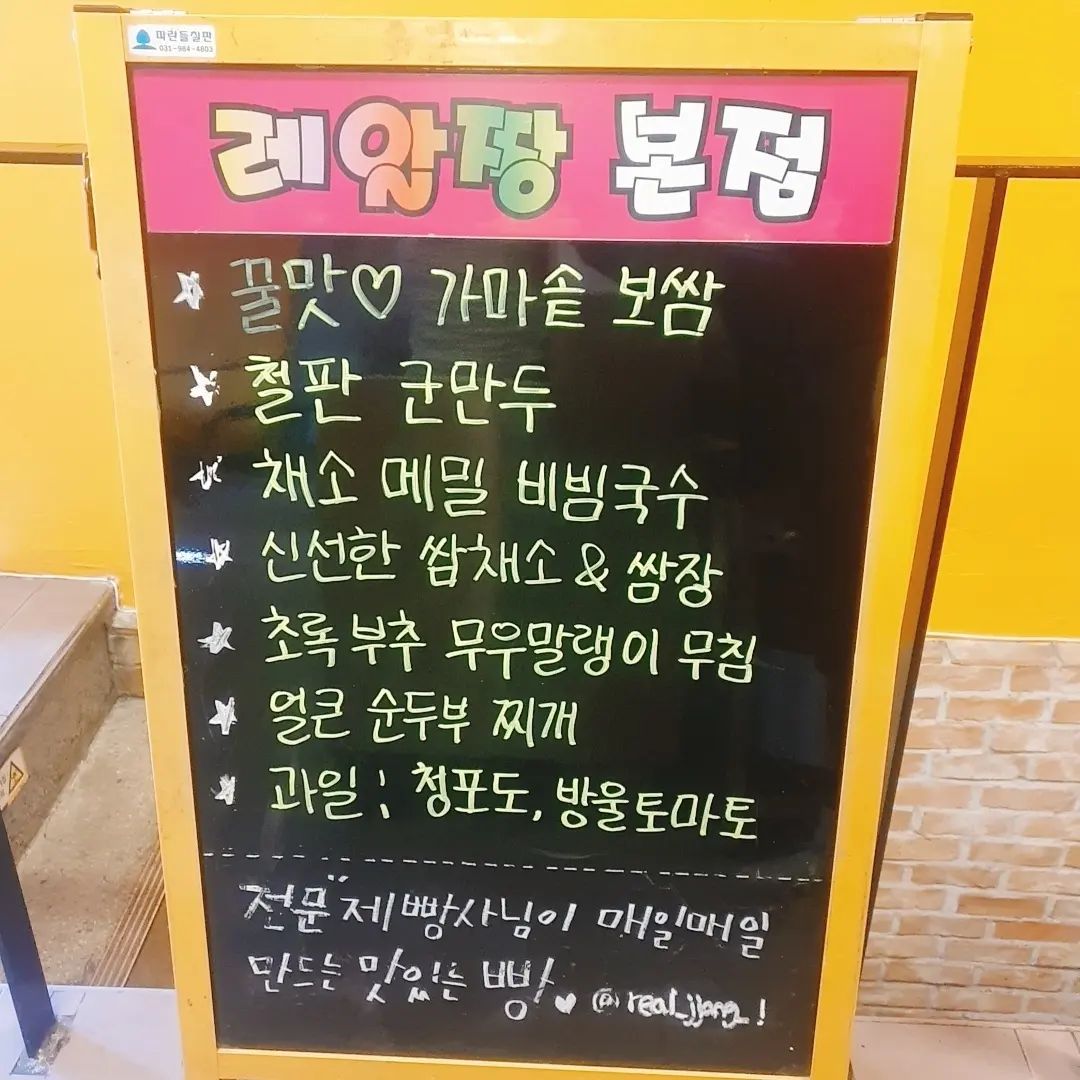 파란들실판
031-984-4803
레알짱 본점
꿀맛♡ 가마솥 보쌈
철판 군만두
채소 메밀 비빔국수
신선한 쌈채소 & 쌈장
초록부추 무우말랭이 무침
얼큰 순두부 찌개
과일; 청포도, 방울토마토
전문 제빵사님이 매일매일
만드는 맛있는 빵 ♥ @real_jjang_!